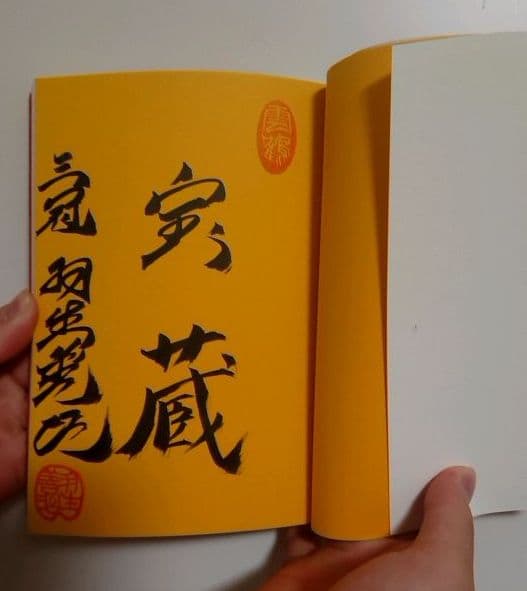 宝蔵
三冠 羽生善治